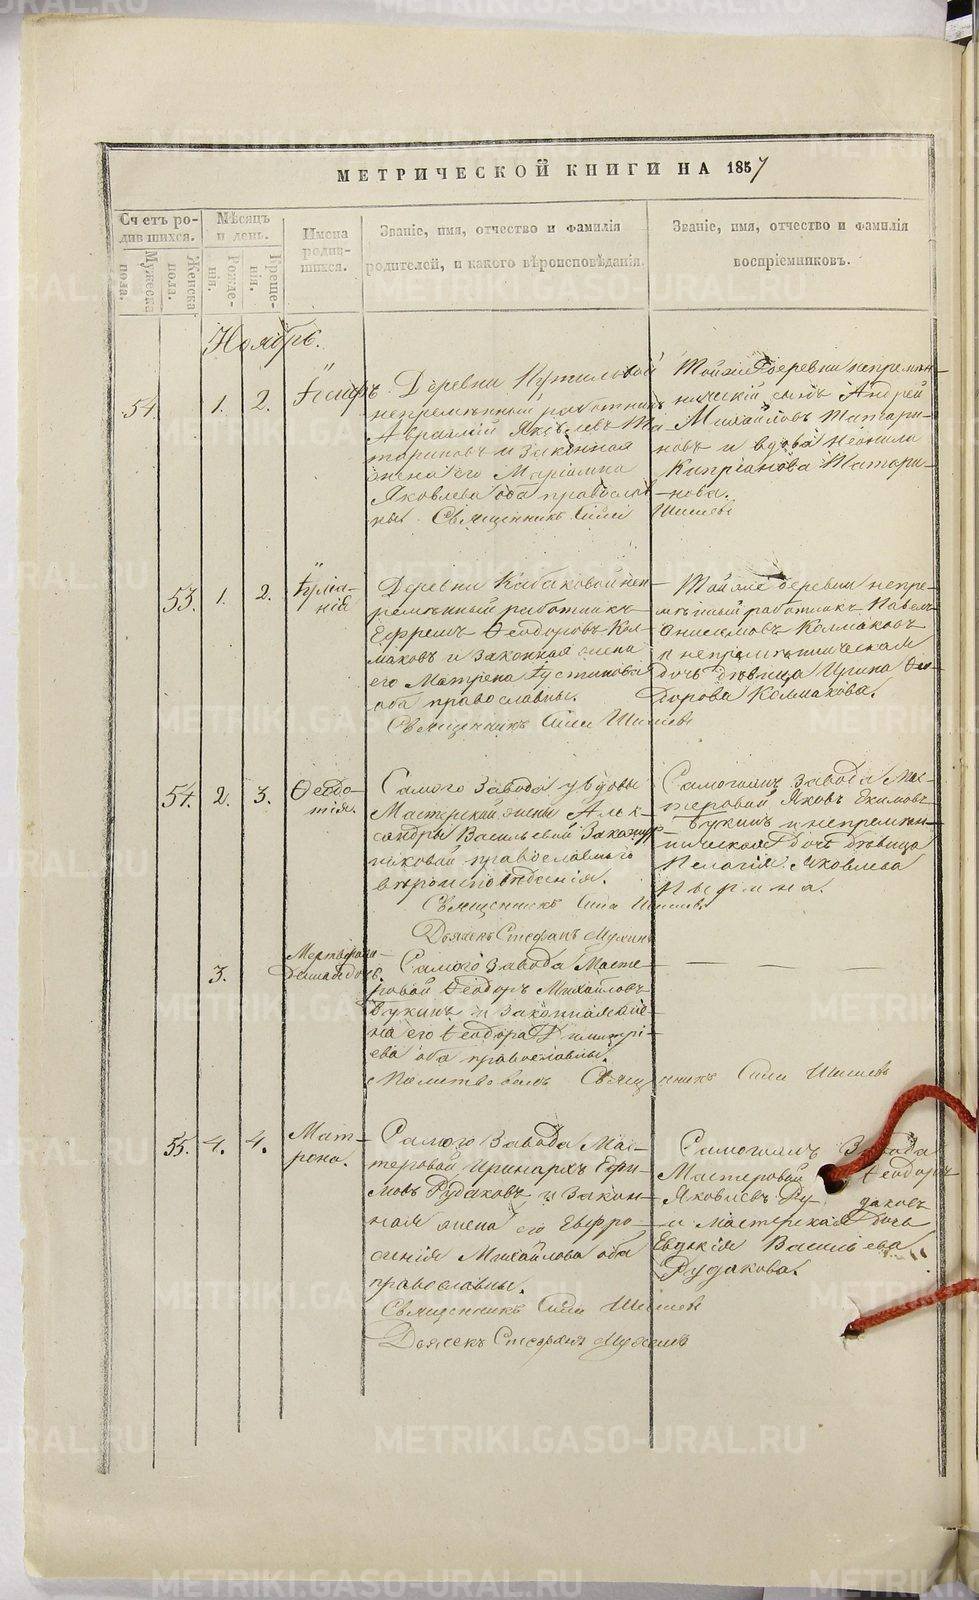 МЕТРИЧЕСКОЙ КНИГИ НА 1857
Счетъ родившихся.
Мужеска пола.
Женска пола.
Мѣсяцъ и день.
Рожденія.
Крещенія.
Имена родившихся.
Званіе, имя, отчество и фамилія
родителей, и какого вѣроисповѣданія.
Званіе, имя, отчество и фамилія
воспріемниковъ.
Ноябрь.
54. 1. 2.
Деревни
непремѣнный работникъ
Аврамій Яковлевъ Та-
тариновъ и законная
жена его Маріамна
Яковлева оба православ-
ны. Священникъ Сила Шишевъ
Тойже деревни непремѣн-
ническій сынъ Андрей
Михайловъ Татари-
новъ и вдова Неонила
Кипріанова Татари-
нова.
53. 1. 2.
Іуліа-
нія
Деревни Кабаковой неп-
ремѣнный работникъ
Ефремъ Ѳеодоровъ Кол-
маковъ и законная жена
его Матрена Іустинова
оба православны.
Священникъ Сила Шишевъ
Тойже деревни непре-
мѣнный работникъ Павелъ
Анисимовъ Колмаковъ
и непремѣнническая
дочь дѣвица Ирина Ѳео-
дорова Колмакова.
54. 2. 3.
Ѳеодо-
тія.
Самого Завода у вдовы
Мастерской жены Алек-
сандры Васильевой
православнаго
вѣроисповѣданія.
Священникъ Сила Шишевъ
Дьячекъ Стефанъ Мухинъ
Самогожъ Завода Мас-
теровой Яковъ Екимовъ
Букинъ и непремѣн-
ническая дочь дѣвица
Пелагія Яковлева
3.
Мертворож-
денная дочь.
Самого Завода Масте-
ровой Ѳеодоръ Михайловъ
Букинъ и законная же-
на его Ѳеодора Димитрі-
ева оба православны.
Молитвовалъ Священникъ Сила Шишевъ
55. 4. 4.
Мат-
рона.
Самого Завода Мас-
теровой Иринархъ Ефи-
мовъ Рудаковъ и закон-
ная жена его Евфро-
синія Михайлова оба
православны.
Священникъ Сила Шишевъ
Дьячекъ Стефанъ Мухинъ
Самогожъ Завода
Мастеровой Ѳеодоръ
Яковлевъ Рудаковъ
и мастерская дочь
Евдокія Васильева
Рудакова.
METRIKI.GASO-URAL.RU